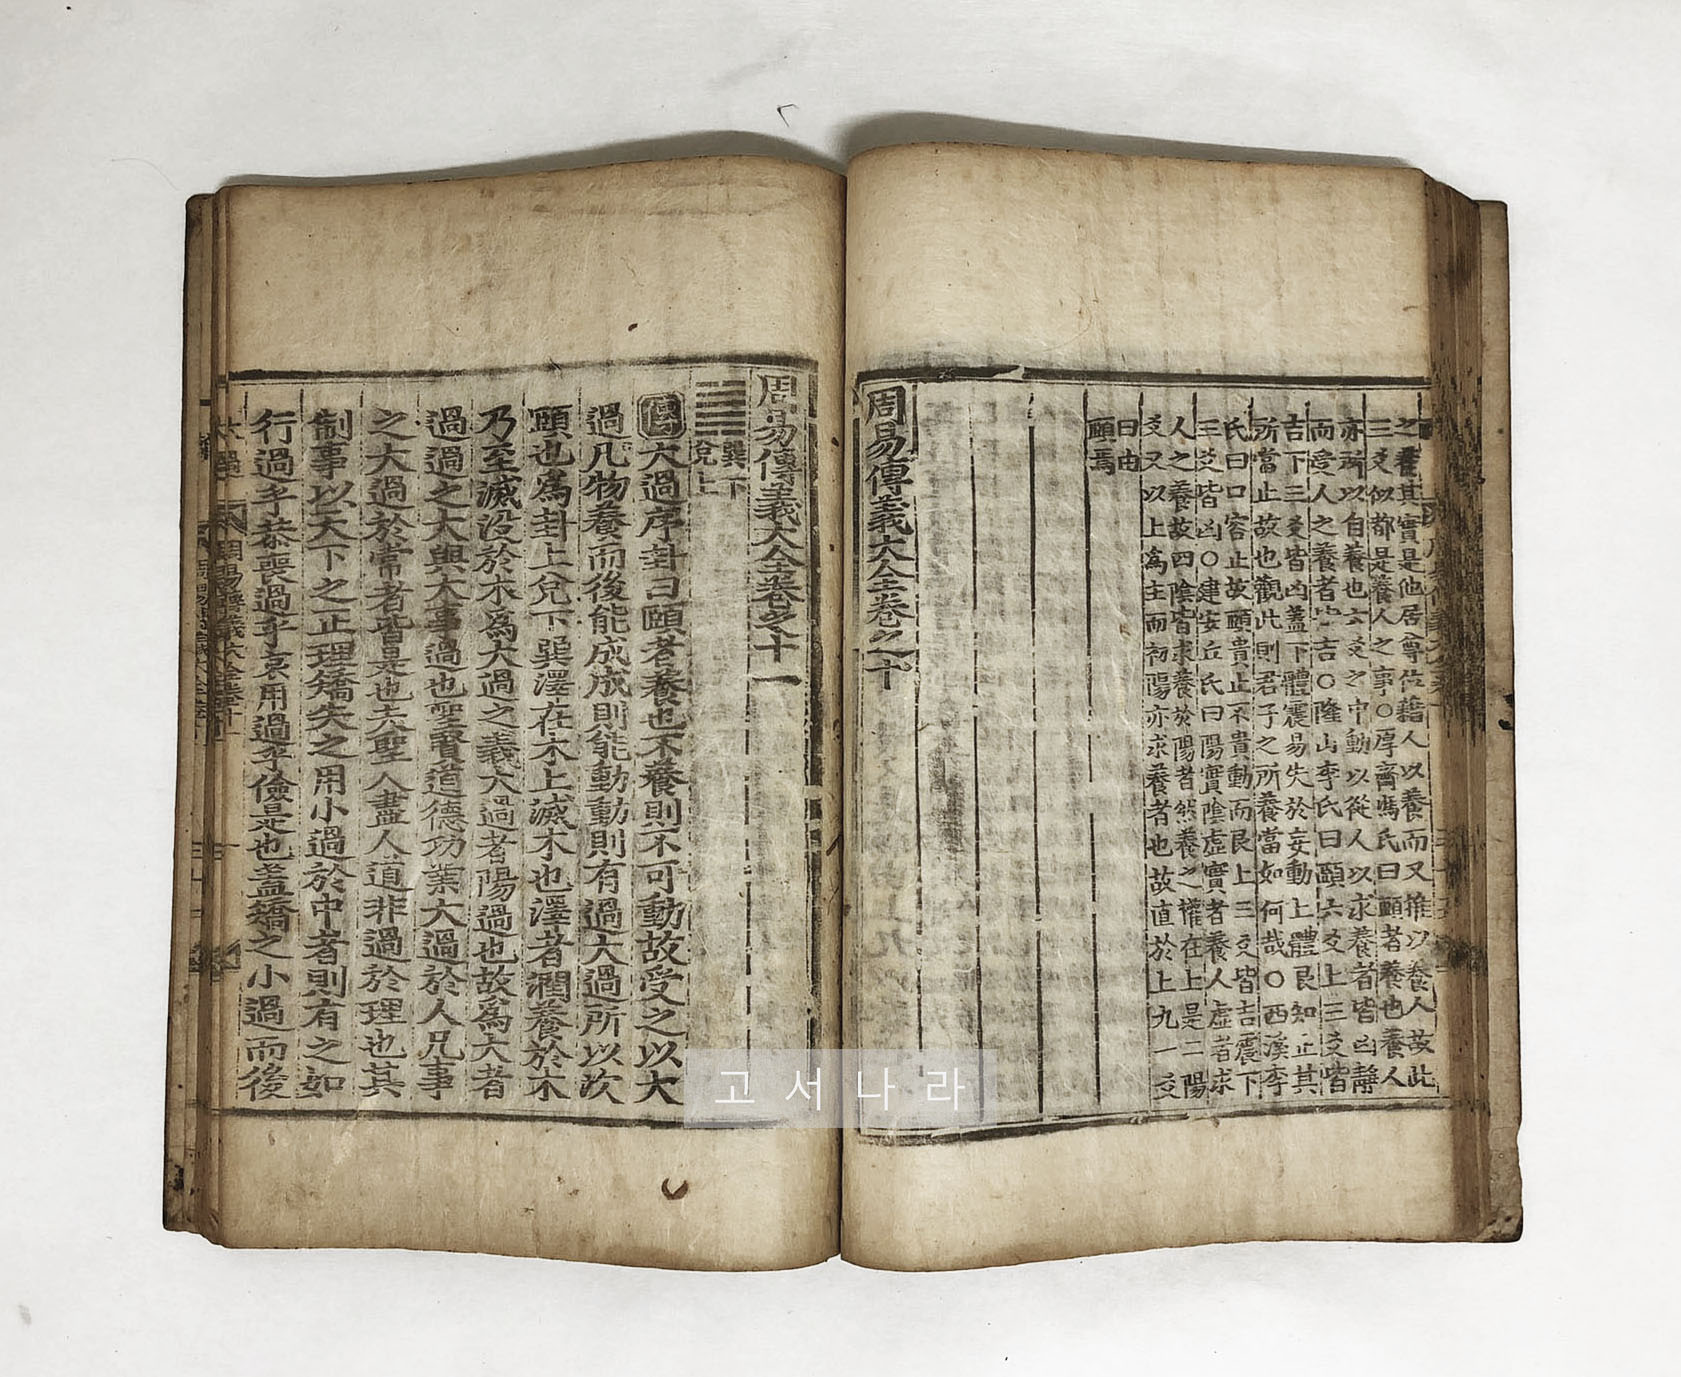 之養其實是他居尊位藉人以養而又推以養人故此
三爻似都是養人之事○厚齋馮氏曰頤者養也養人
亦所以自養也六爻之中動以從人以求養者皆凶靜
而受人之養者皆吉○隆山李氏曰頤六爻上三爻皆
吉下三爻皆凶蓋下體震易失於妄動上體艮知止其
所當止故也觀此則君子之所養當如何哉○西溪李
氏曰口容止故頤貴止不貴動而艮上三爻皆吉震下
三爻皆凶○建安丘氏曰陽實陰虛實者養人虛者求
人之養故四陰皆求養於陽者然養之權在上是二陽
爻又以上爲主而初陽亦求養者也故直於上九一爻
曰由
頤焉
周易傳義大全卷之十
周易傳義大全卷之十一
巽下
兌上
傳大過序卦曰頤者養也不養則不可動故受之以大
過凡物養而後能成成則能動動則有過大過所以次
頤也爲卦上兌下巽澤在木上滅木也澤者潤養於木
乃至滅沒於木爲大過之義大過者陽過也故爲大者
過過之大與大事過也聖賢道德功業大過於人凡事
之大過於常者皆是也夫聖人盡人道非過於理也其
制事以天下之正理矯失之用小過於中者則有之如
行過乎恭喪過乎哀用過乎儉是也蓋矯之小過而後
고서나라